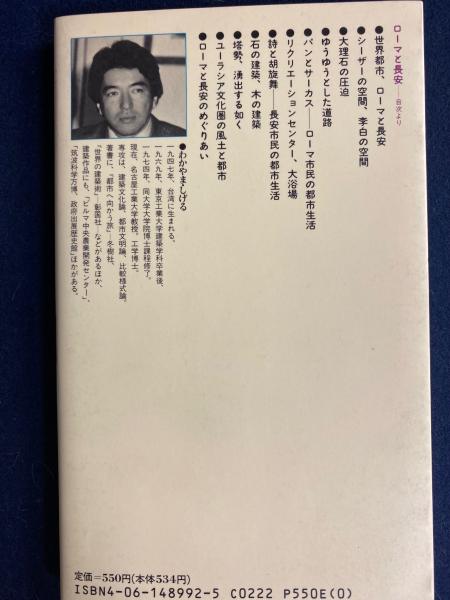 ローマと長安——目次より
●世界都市、ローマと長安
●シーザーの空間、李白の空間
●大理石の圧迫
●ゆうゆうとした道路
●パンとサーカス——ローマ市民の都市生活
●リクリエーションセンター、大浴場
●詩と胡旋舞——長安市民の都市生活
●石の建築、木の建築
●塔勢、湧出する如く
●ユーラシア文化圏の風土と都市
●ローマと長安のめぐりあい
●わかやま・しげる
一九四七年、台湾に生まれる。
一九六九年、東京工業大学建築学科卒業後、
一九七四年、同大学大学院博士課程修了。
現在、名古屋工業大学教授。工学博士。
専攻は、建築文化論、都市文明論、比較様式論。
著書に、『都市へ向かう旅』—冬樹社、
『世界の建築術』—彰国社—などがあるほか、
建築作品にも、「ビルマ中央農業開発センター」、
「筑波科学万博、政府出展歴史館」ほかがある。
定価=550円(本体534円)
ISBN4-06-148992-5 C0222 P550E(0)